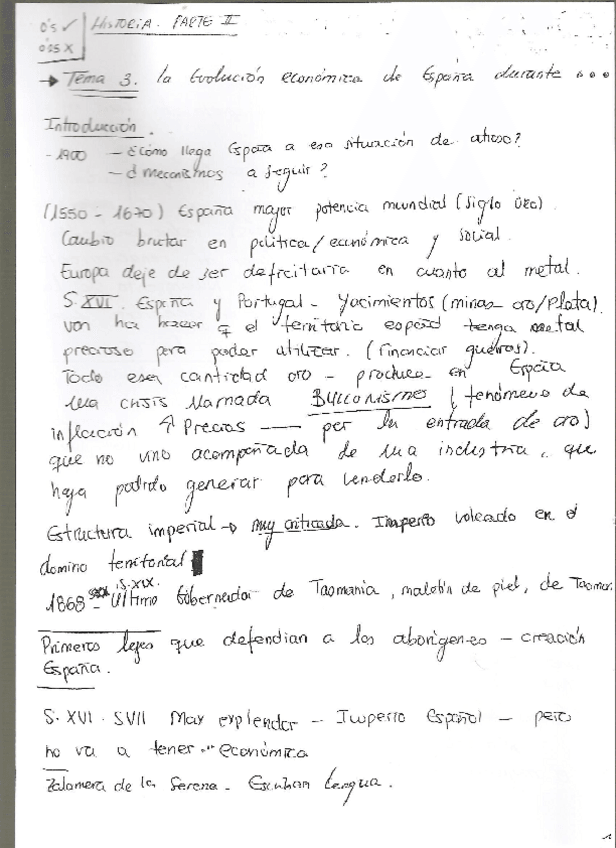 o's ✓ HISTORIA. PARTE II
o'os x
→ Tema 3. la Evolución económica de España durante ...
Introducción.
- 1900 - ¿Cómo llega España a esa situación de atraso?
- d mecanismos a seguir?
(1550 - 1670) España mayor potencia mundial (Siglo oro).
Cambio brutar en política/económica y social.
Europa deje de ser deficitaria en cuanto al metal.
S. XVI. España y Portugal - Yacimientos (minas oro/Plata).
van ha hacer q el territorio español tenga metal
precioso para poder utilizar. (financiar guerras).
Todo esa cantidad oro - produce en España
una crisis llamada BULLONISMO (fenómeno de
inflación ↑ Precios — por la entrada de oro)
que no vino acompañada de una industria, que
haya podido generar para venderlo.
Estructura imperial → muy criticada. Imperio volcado en el
domino territorial
S. XIX.
1868 - Último Gobernador de Tasmania, maletín de piel, de
Primeros leyes que defendian a los aborigenes - creación
España.
S. XVI - SVII May explendor - Imperio Español - pero
no va a tener económica
Zalamera de la Serena - Lengua.